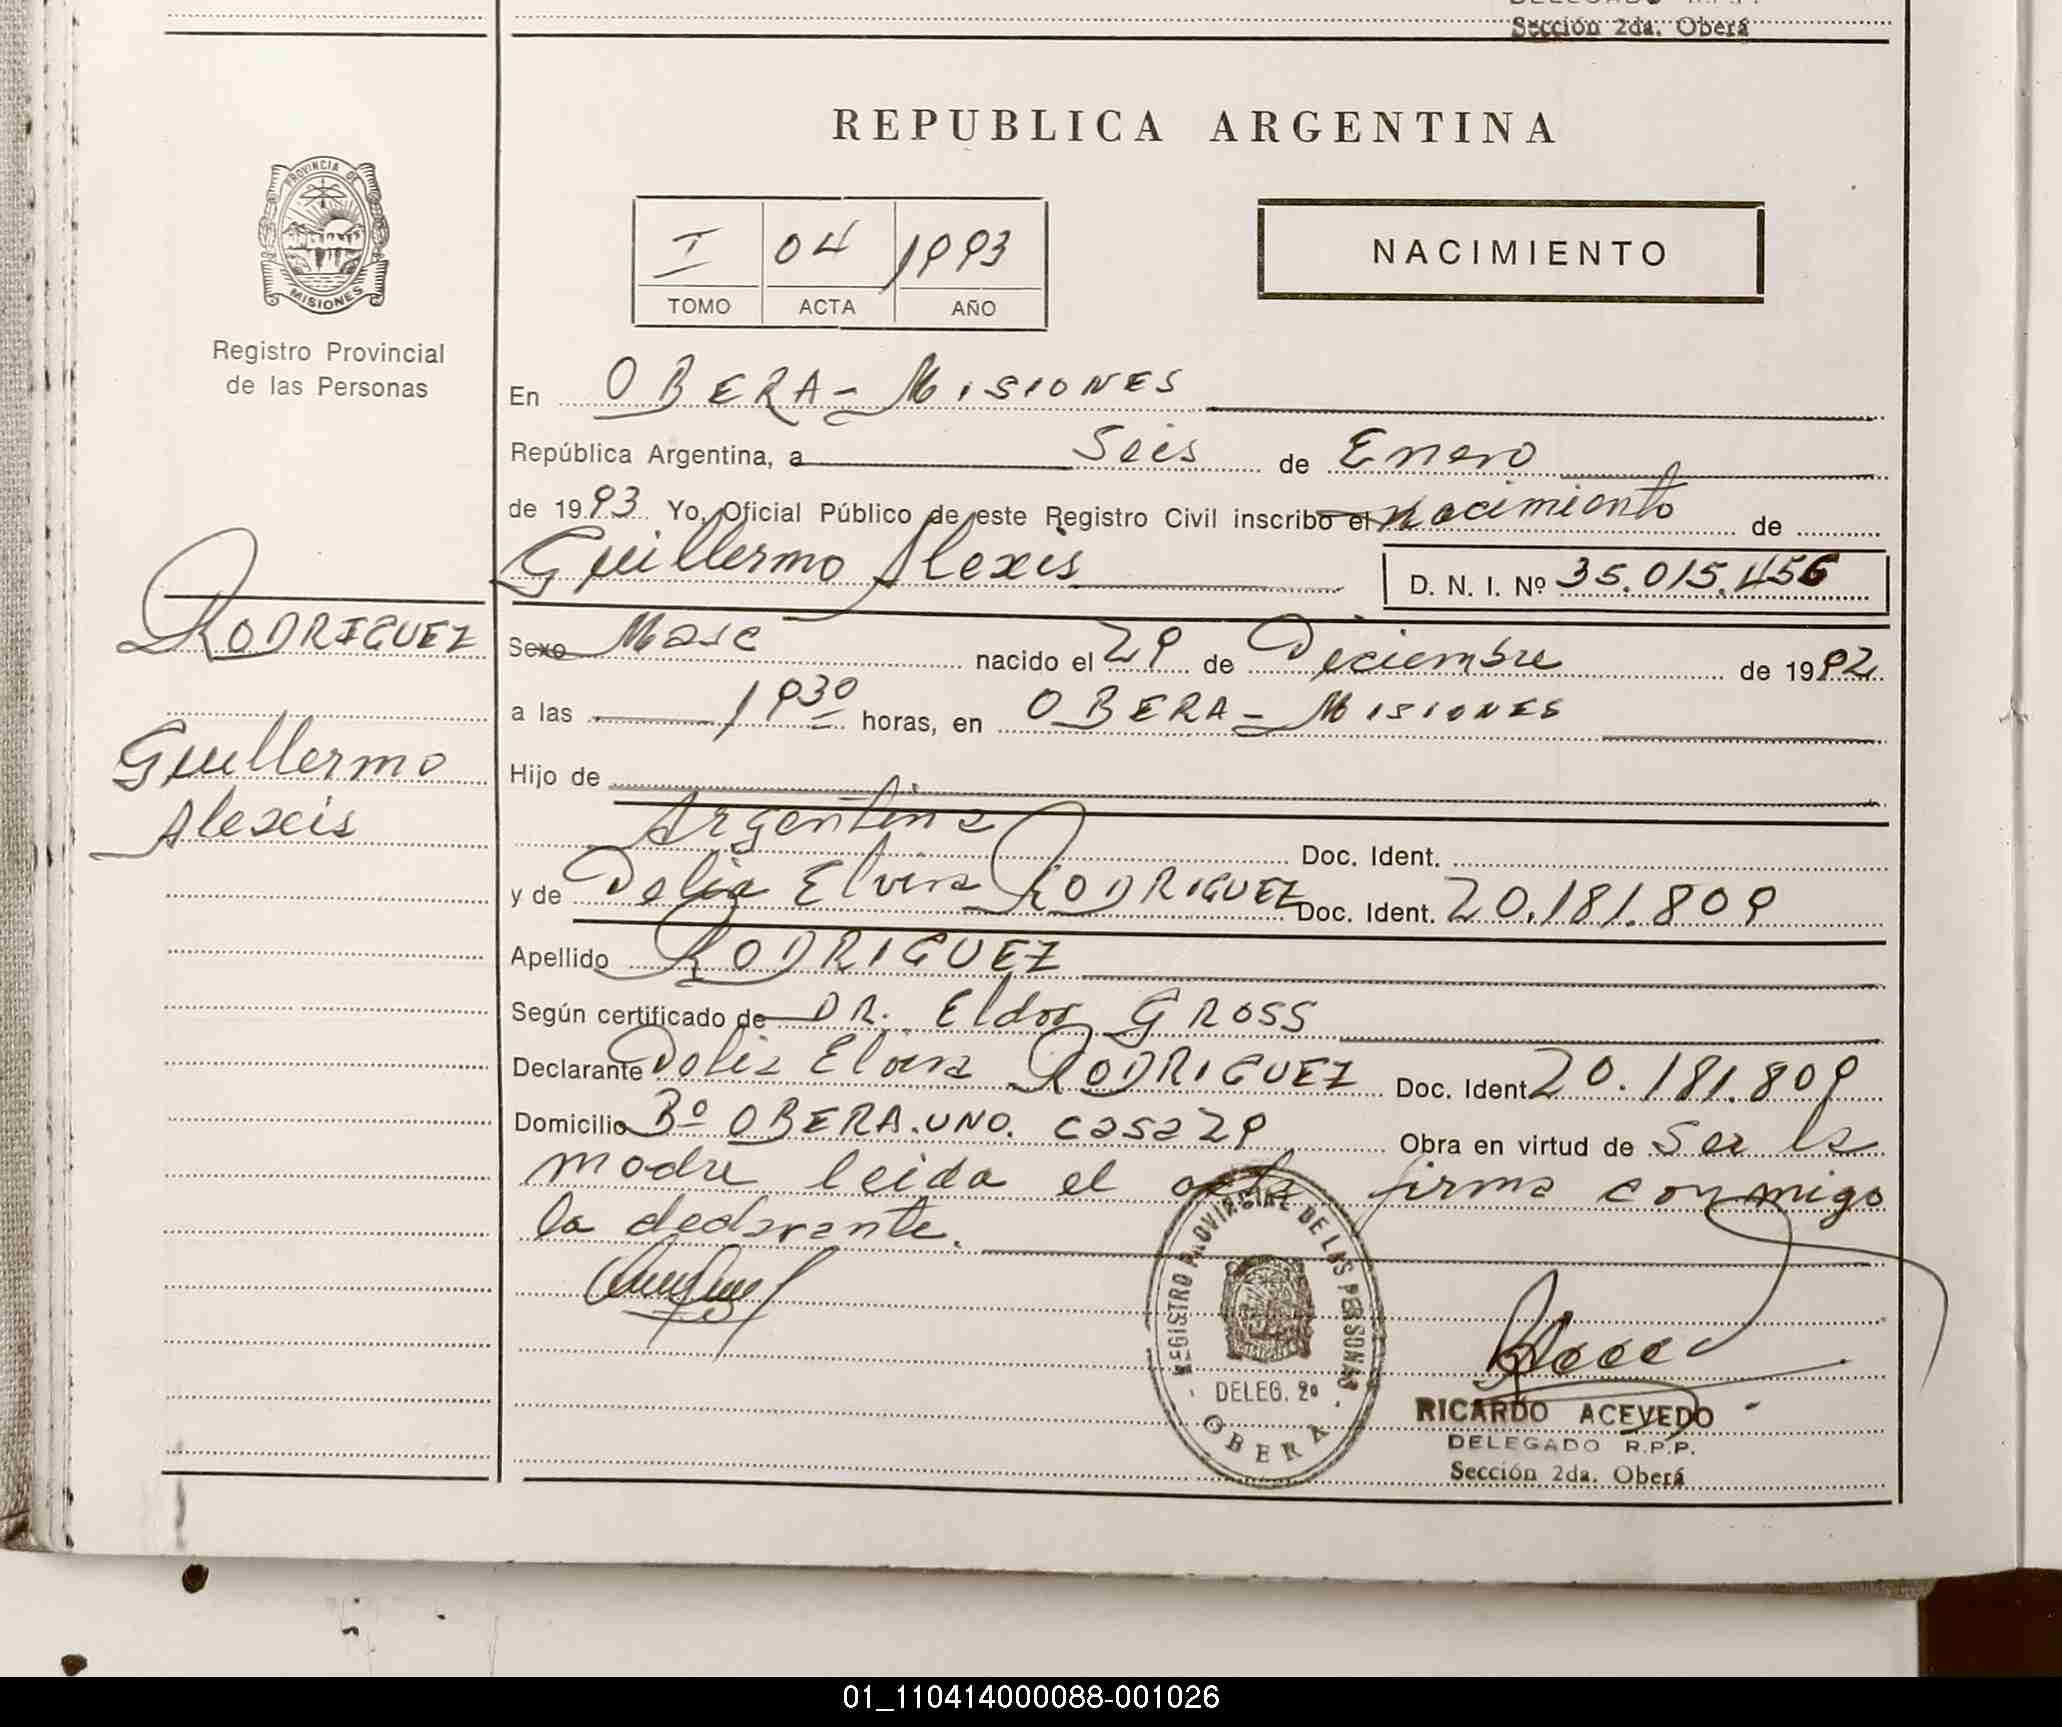 Sección 2da. Oberá
REPUBLICA ARGENTINA
PROVINCIA DE
MISIONES
Registro Provincial
de las Personas
I 04 1993
TOMO ACTA AÑO
NACIMIENTO
En OBERA - MISIONES
República Argentina, a Seis de Enero
de 1993 Yo, Oficial Público de este Registro Civil inscribo el nacimiento de
Guillermo Alexis D. N. I. Nº 35.015.456
RODRIGUEZ
Guillermo
Alexis
Sexo Masc nacido el 29 de Diciembre de 1992
a las 1930 horas, en OBERA - MISIONES
Hijo de
Argentina Doc. Ident.
y de Delia Elvira RODRIGUEZ Doc. Ident. 20.181.809
Apellido RODRIGUEZ
Según certificado de DR. Eldor GROSS
Declarante Delia Elvira RODRIGUEZ Doc. Ident 20.181.809
Domicilio Bº OBERA.UNO. casa 29 Obra en virtud de ser la
madre leida el acta firma conmigo
la declarante.
REGISTRO PROVINCIAL DE LAS PERSONAS
DELEG. 2º
OBERA
RICARDO ACEVEDO
DELEGADO R.P.P.
Sección 2da. Oberá
01_110414000088-001026